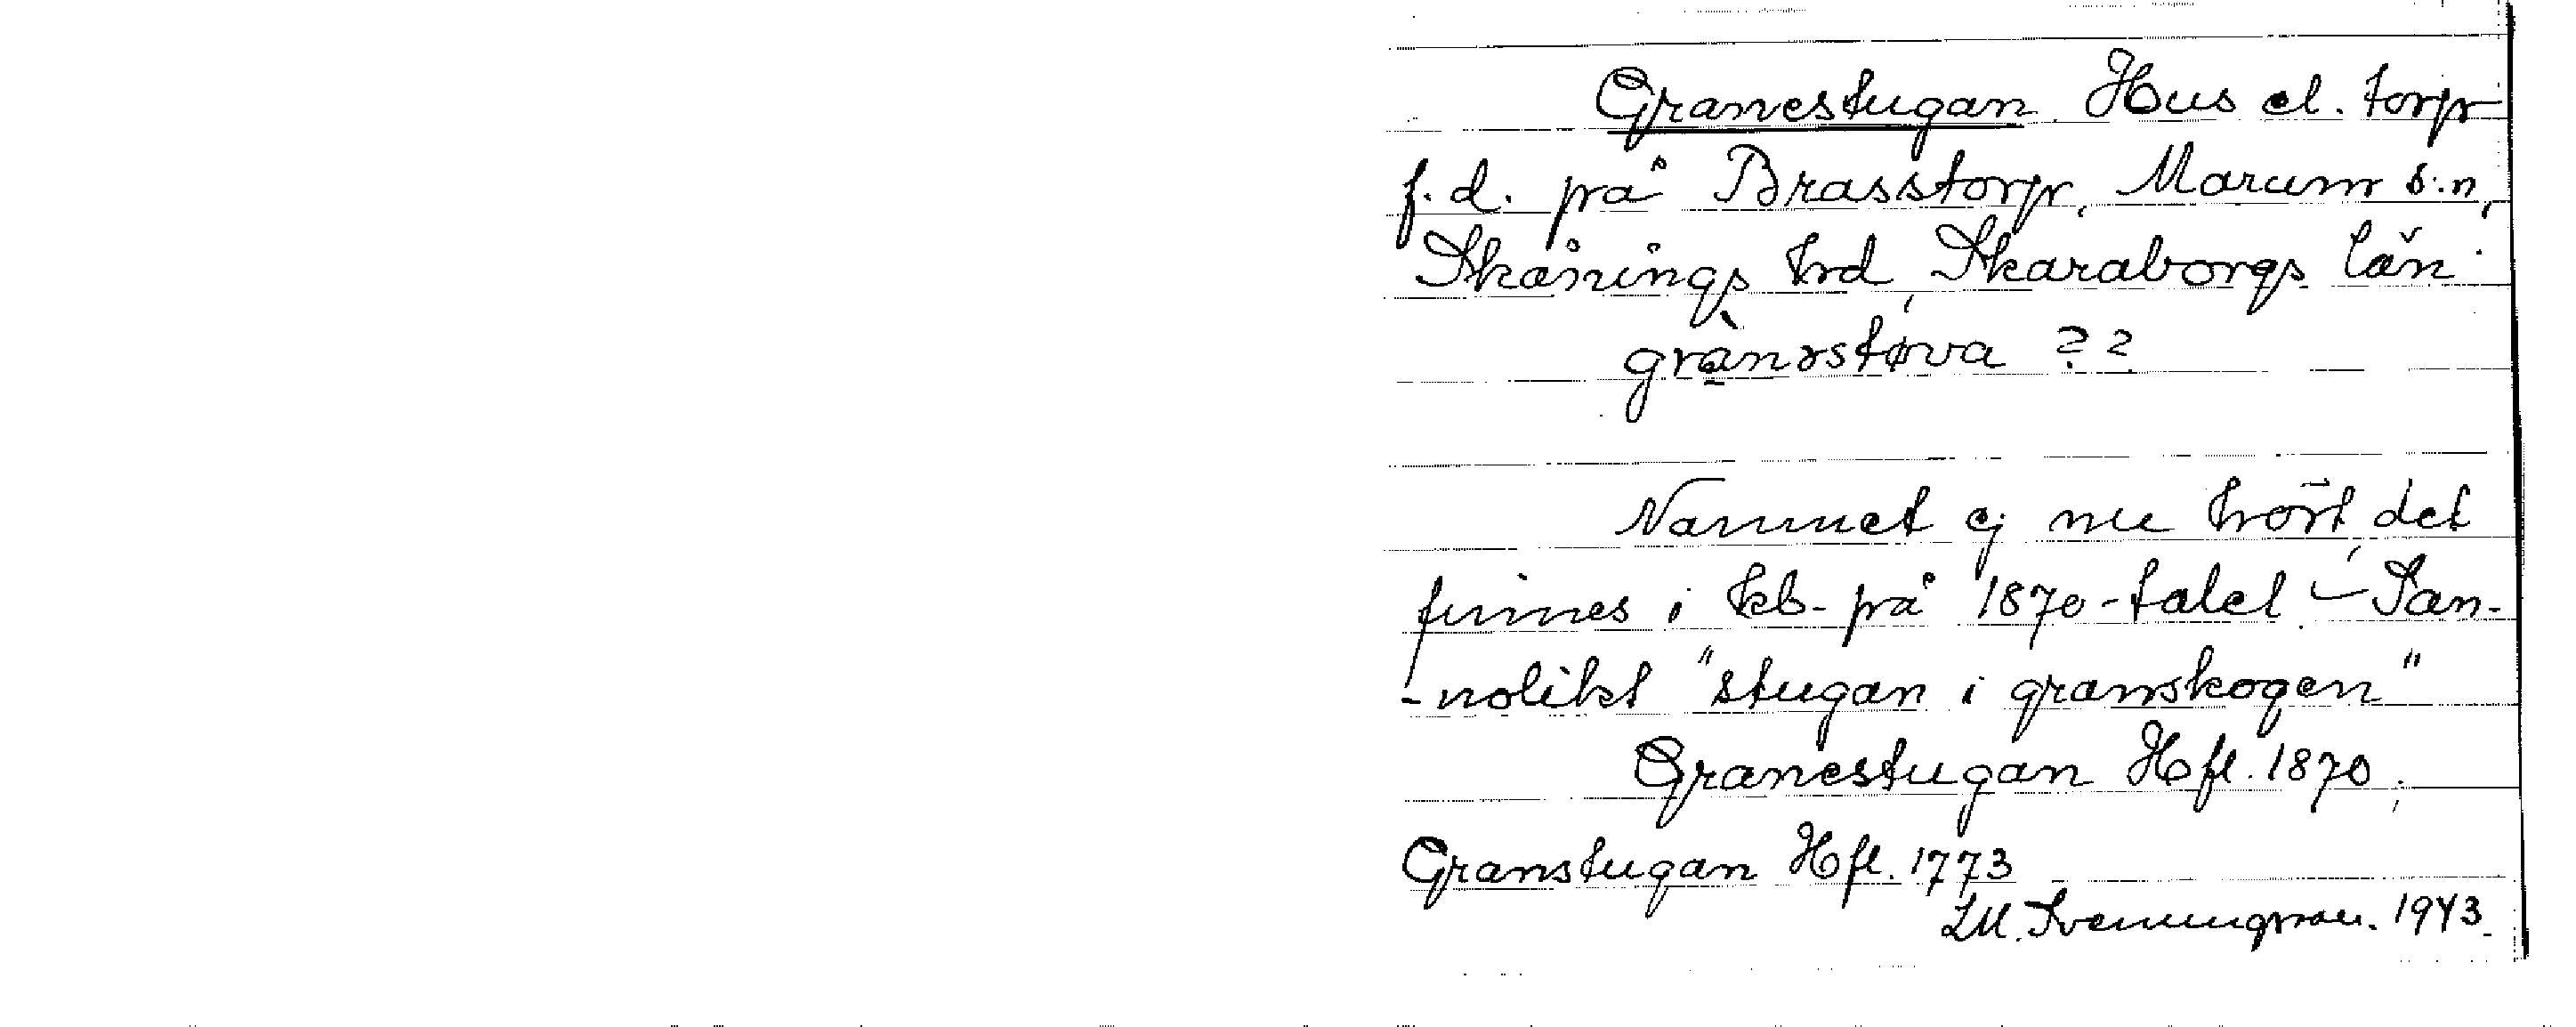 Granestugan. Hus el. torp
f.d. på Brasstorp, Marum s:n,
Skånings hrd, Skaraborgs län.
grànəstøva ??
Namnet ej nu hört, det
finnes i kb. på 1870-talet. – San-
-nolikt "stugan i granskogen"
Granestugan Hfl. 1870,
Granstugan Hfl. 1773
LM. Svenungsson. 1943.